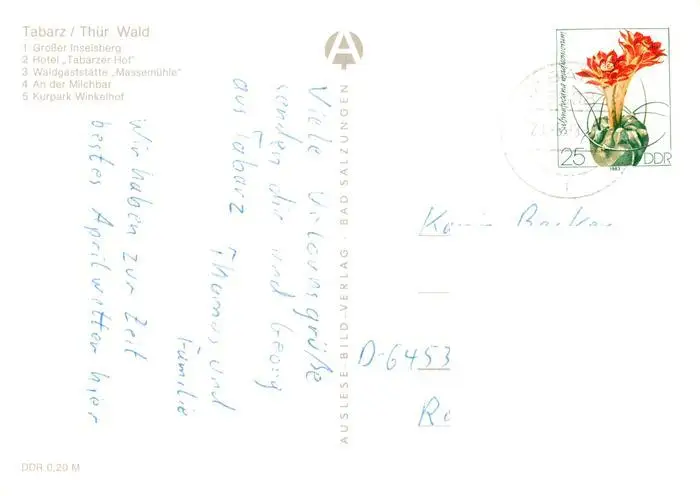 Tabarz / Thür Wald
1 Großer Inselsberg
2 Hotel „Tabarzer Hof"
3 Waldgaststätte „Massemühle"
4 An der Milchbar
5 Kurpark Winkelhof
Viele Urlaubsgrüße
senden dir und Georg
aus Tabarz Thomas und
Familie
Wir haben zur Zeit
bestes Aprilwetter hier
DDR 0,20 M
AUSLESE-BILD-VERLAG · BAD SALZUNGEN
A
25
DDR
1983
D-6453